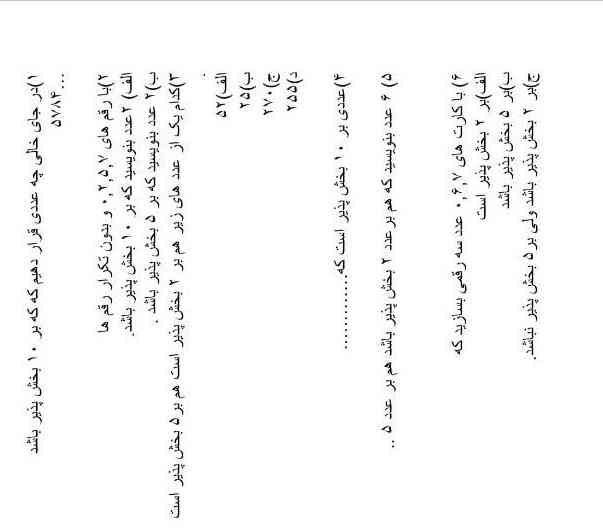 ۱)در جای خالی چه عددی قرار دهیم که که بر ۱۰ بخش پذیر باشد
۵۷۸۴...
۲)با رقم های ۰,۲,۵,۷ و بدون تکرار رقم ها
الف) ۲عدد بنویسید که بر ۱۰ بخش پذیر باشد.
ب)۲ عدد بنویسید که بر ۵ بخش پذیر باشد .
۳)کدام یک از عدد های زیر هم بر ۲ بخش پذیر است هم بر ۵ بخش پذیر است
.
الف)۵۲
ب)۲۵
ج)۲۷۰
د)۲۵۵
۴)عددی بر ۱۰ بخش پذیر است که...............
۵) ۶ عدد بنویسید که هم بر عدد ۲ بخش پذیر باشد هم بر عدد ۵ ..
۶) با کارت های ۰,۶,۷ عدد سه رقمی بسازید که
الف)بر ۲ بخش پذیر است
ب)بر ۵ بخش پذیر باشد
ج)بر ۲ بخش پذیر باشد ولی بر ۵ بخش پذیر نباشد.